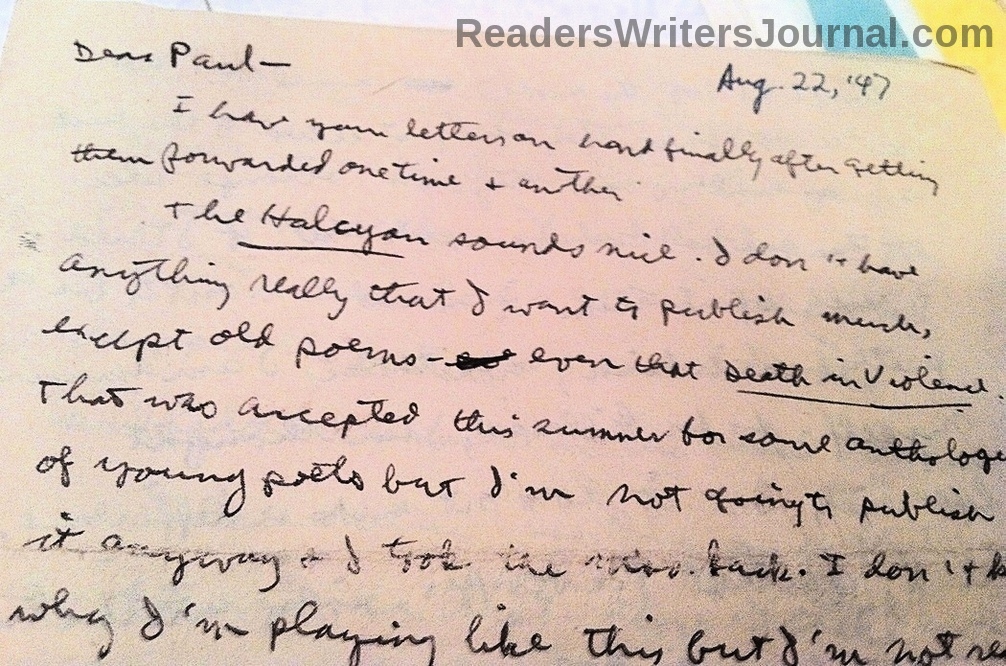 ReadersWritersJournal.com
Dear Paul—
Aug. 22, '47
I have your letters on hand finally after getting
them forwarded one time + another.
The Halcyon sounds nice. I don't have
anything really that I want to publish much,
except old poems- even that Death in Violence
that was accepted this summer for some antholog
of young poets but I'm not going to publish
it anyway + I took the back. I don't
why I'm playing like this but I'm not